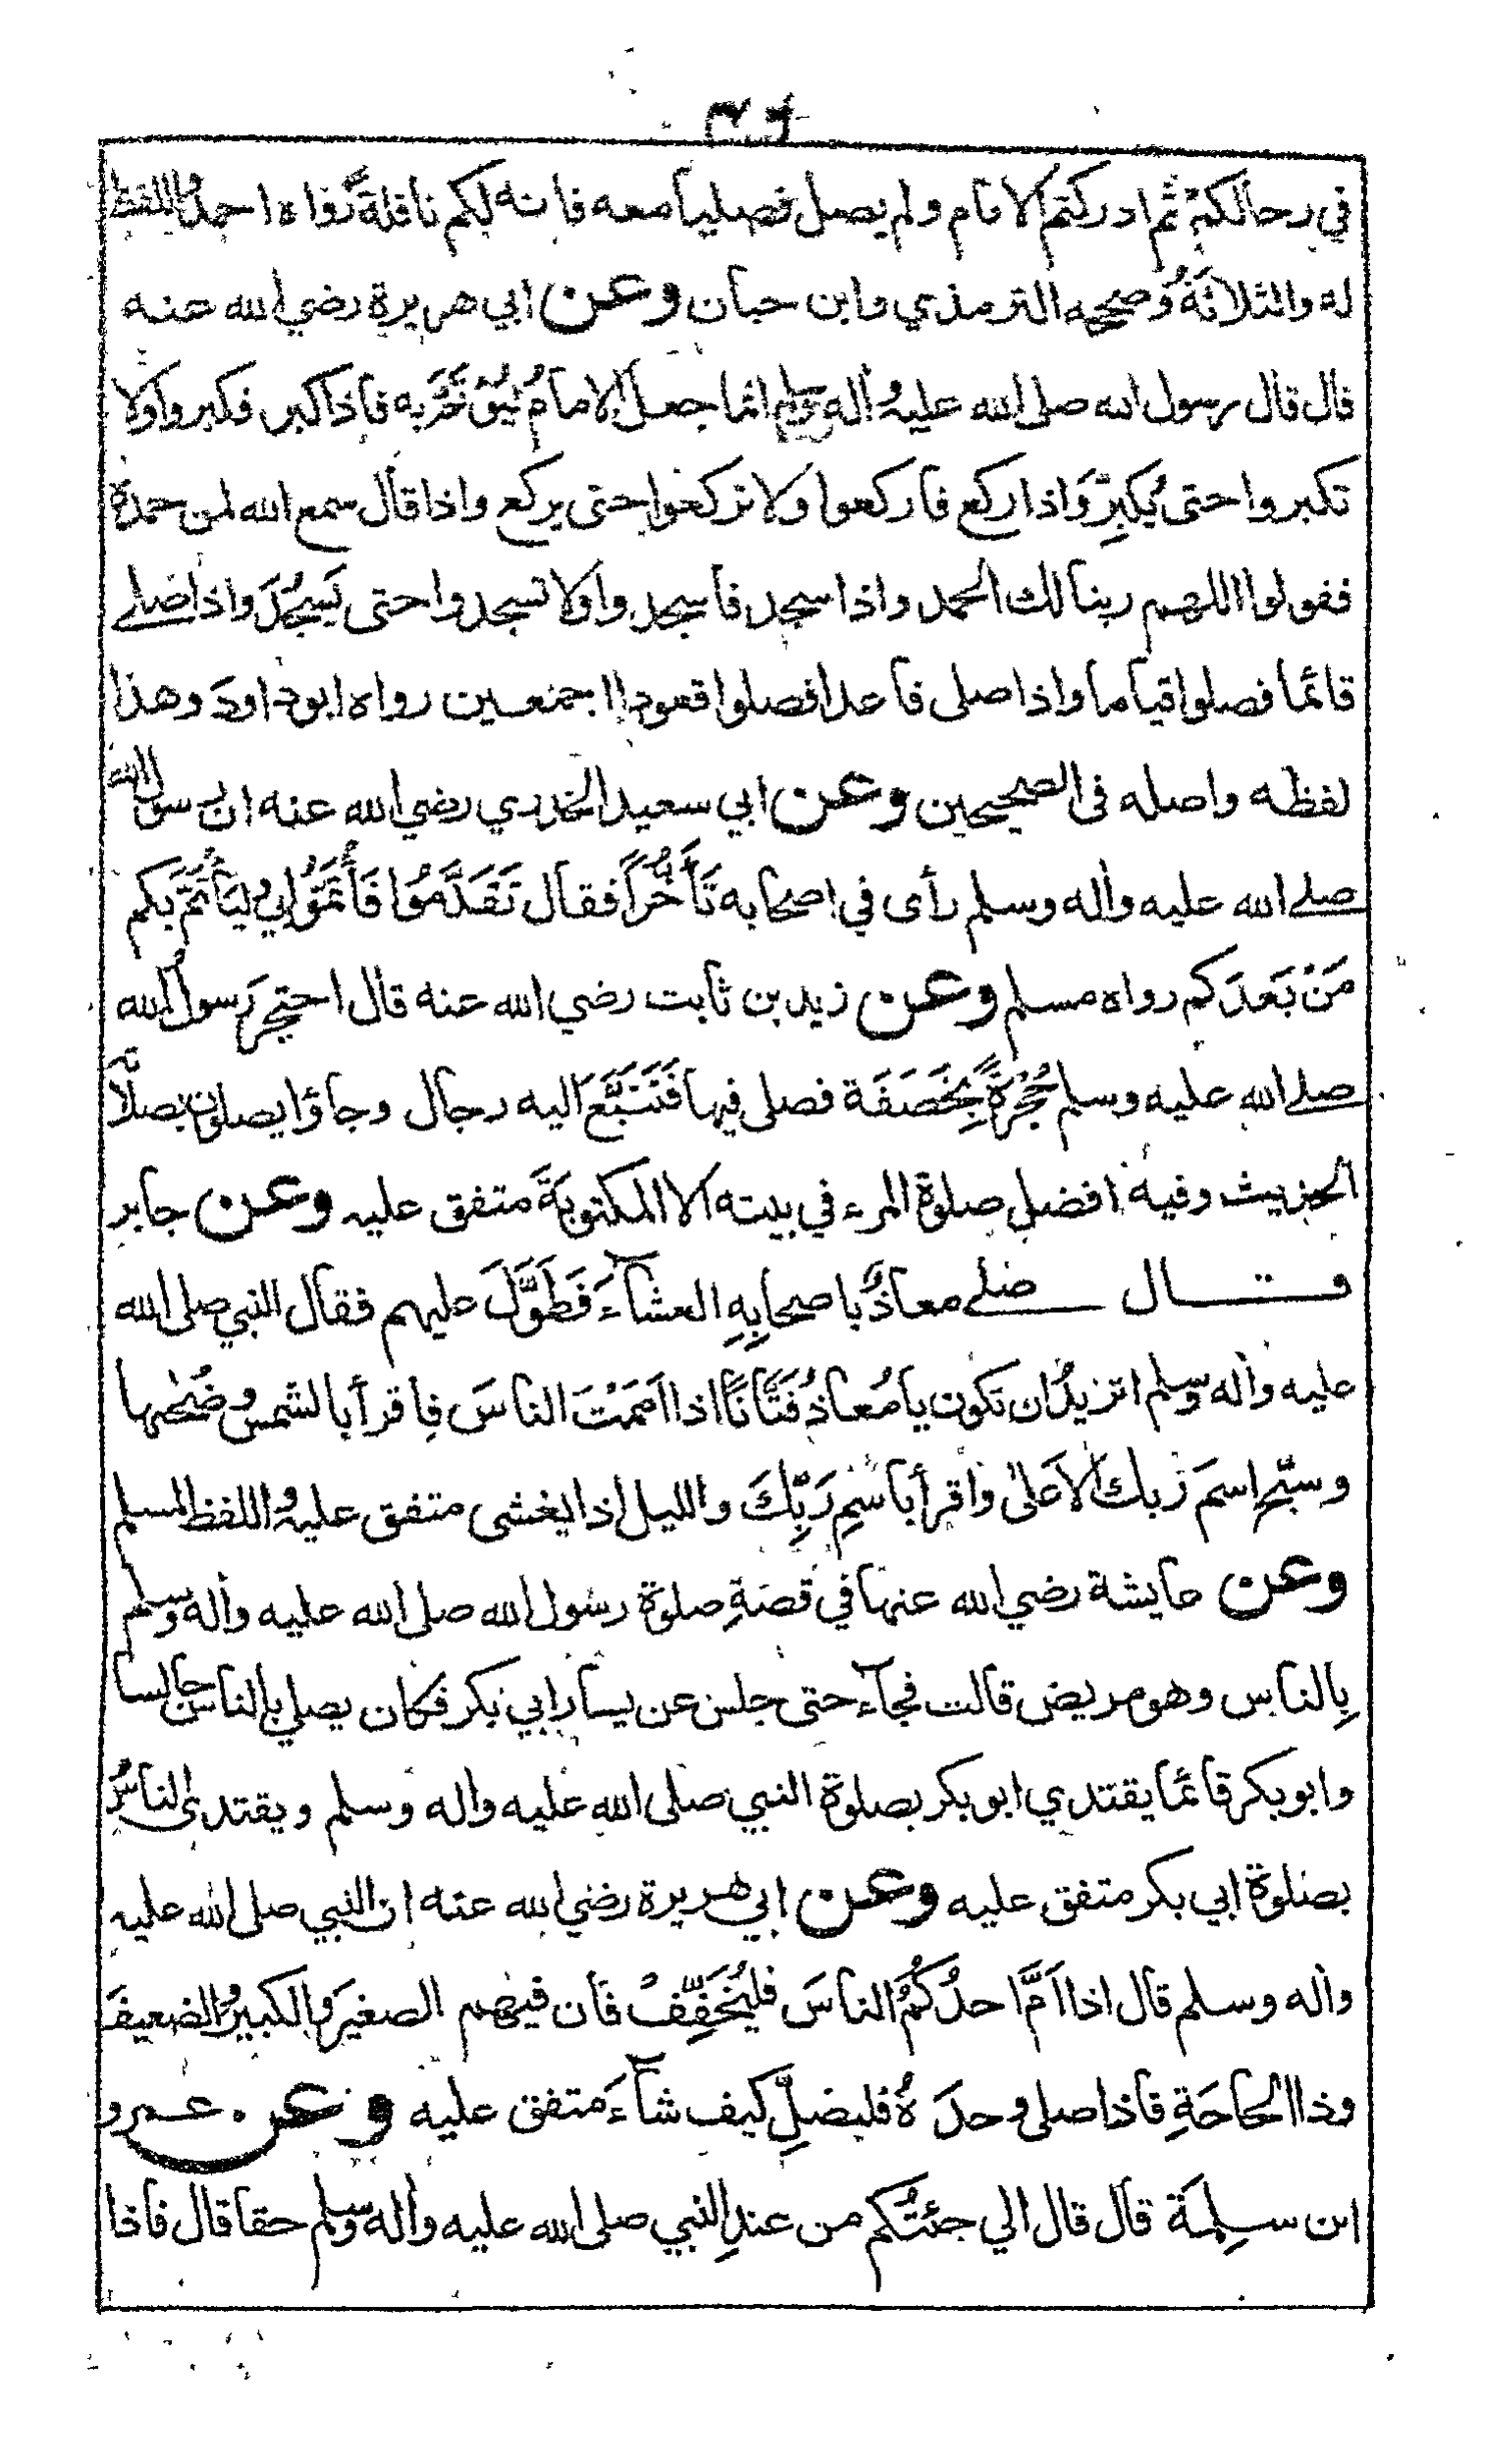 في رحالكم ثم ادركتم الامام ولم يصل فصليا معه فانه لكم نافلةً رواه احمد واللفظ
له والثلاثة وصححه الترمذي وابن حبان وعن ابي هريرة رضي الله عنه
قال قال رسول الله صلى الله عليه واله وسلم انما جعل الامامُ ليُؤْتَمَّ به فاذا كبر فكبروا ولا
تكبروا حتى يُكبِرَ وَاذا ركع فاركعوا ولا تركعوا حتى يركع واذا قال سمع الله لمن حمده
فقولوا اللهم ربنا لك الحمد واذا سجد فاسجدوا ولا تسجدوا حتى يَسجُدَ واذا صلے
قائما فصلوا قياما واذا صلى قاعدا فصلوا قعودا اجمعين رواه ابوداودَ وهذا
لفظه واصله فى الصحيحين وعن ابي سعيد الخدري رضي الله عنه ان رسول الله
صلے الله عليه واله وسلم رأى في اصحابه تَأَخُّراً فقال تَقَدَّمُوا فَأْتَمُّوا بِي وليَأْتَمَّ بكم
مَنْ بَعدَكم رواه مسلم وعن زيد بن ثابت رضي الله عنه قال احتجرَ رسولُ الله
صلے الله عليه وسلم حُجْرَةً بِخَصَفَة فصلى فيها فَتَتَبَّعَ اليه رجال وجاؤا يصلون بصلاته
الحديث وفيه افضل صلوة المرء في بيته الا المكتوبةَ متفق عليه وعن جابر
قال صلے معاذٌ باصحابِهِ العشآءَ فَطَوَّلَ عليهم فقال النبي صلى الله
عليه واله وسلم اتريدُ ان تكون يا مُعاذُ فَتَّانًا اذا اَمَمْتَ الناسَ فاقرأ بالشمس وضُحٰىها
وسبّحِ اسمَ ربك الاَعلىٰ واقرأ باسمِ رَبِّكَ والليل اذا يغشى متفق عليه واللفظ لمسلم
وعن عايشة رضي الله عنها في قصةِ صلوة رسول الله صلى الله عليه واله وسلم
بِالناس وهو مريض قالت فجآء حتى جلس عن يسار ابي بكر فكان يصلي بالناس جالسا
وابوبكر قائما يقتدي ابوبكر بصلوة النبي صلى الله عليه واله وسلم ويقتدى الناسُ
بصلوة ابي بكر متفق عليه وعن ابي هريرة رضي الله عنه ان النبي صلى الله عليه
واله وسلم قال اذا اَمَّ احدُكُمُ الناسَ فليُخَفِّفْ فان فيهم الصغيرَ والكبيرَ والضعيفَ
وذا الحاجَةِ فاذا صلى وحدَهُ فليصلِّ كيف شآءَ متفق عليه وعن عمرو
ابن سلِمَة قال قال ابي جئتُكم من عندِ النبي صلى الله عليه واله وسلم حقا قال فاذا